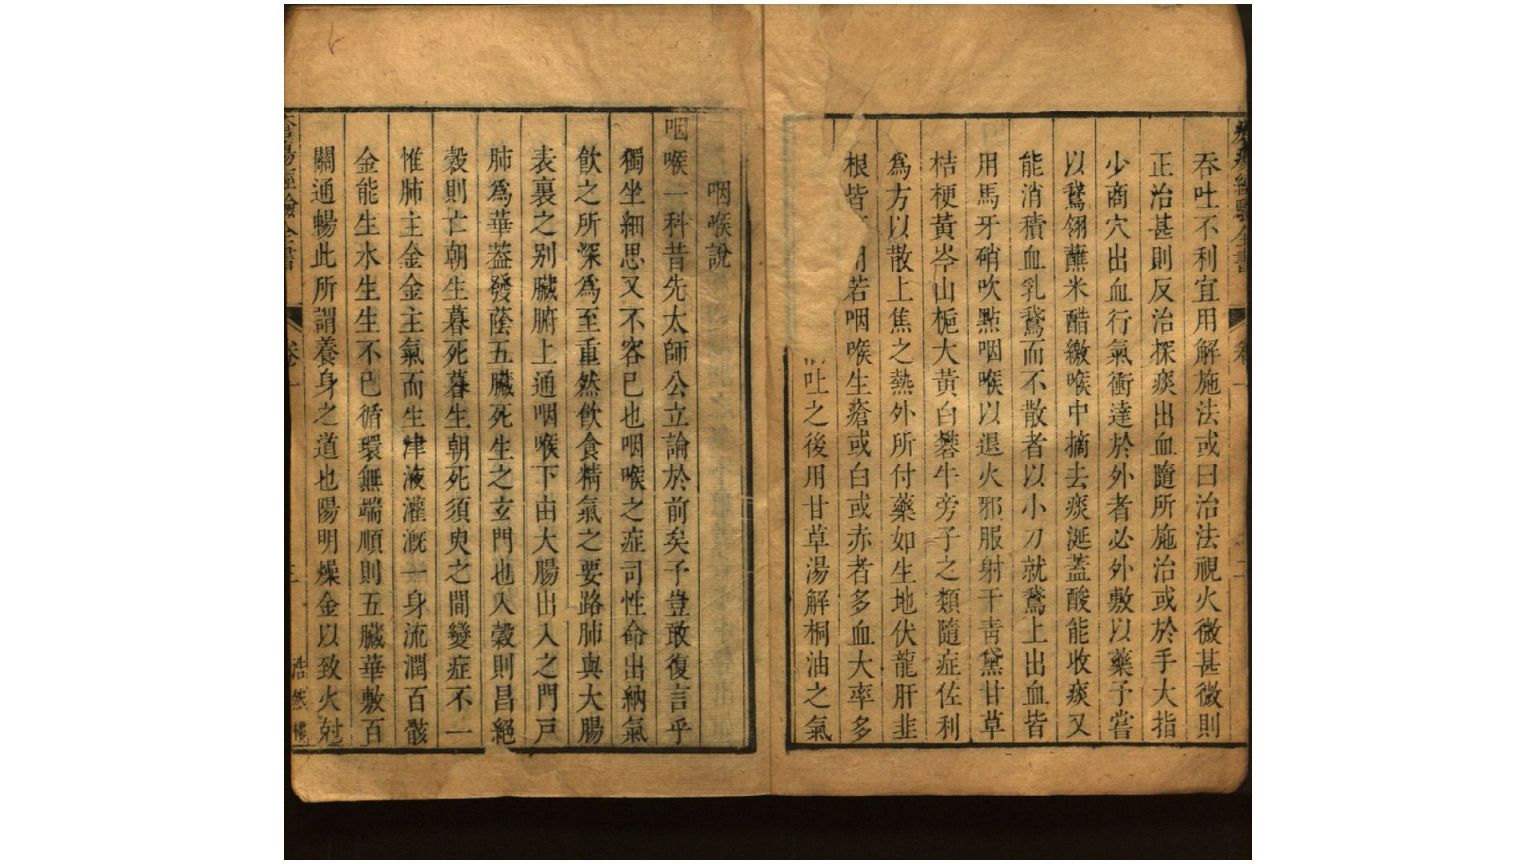 吞吐不利宜用解施法或曰治法視火微甚微則
正治甚則反治探痰出血隨所施治或於手大指
少商穴出血行氣衝達於外者必外敷以藥予嘗
以鵞翎蘸米醋繳喉中摘去痰涎蓋酸能收痰又
能消積血乳鵞而不散者以小刀就鵞上出血皆
用馬牙硝吹點咽喉以退火邪服射干青黛甘草
桔梗黃岑山梔大黃白礬牛旁子之類隨症佐利
爲方以散上焦之熱外所付藥如生地伏龍肝韭
根皆用若咽喉生瘡或白或赤者多血大率多
吐之後用甘草湯解桐油之氣
咽喉說
咽喉一科昔先太師公立論於前矣予豈敢復言乎
獨坐細思又不容已也咽喉之症司性命出納氣
飲之所深爲至重然飲食精氣之要路肺與大腸
表裏之别臟腑上通咽喉下由大腸出入之門戸
肺爲華葢發蔭五臟死生之玄門也入穀則昌絕
穀則亡朝生暮死暮生朝死須臾之間變症不一
惟肺主金金主氣而生津液灌溉一身流潤百骸
金能生水生生不已循環無端順則五臟華敷百
關通暢此所謂養身之道也陽明燥金以致火尅
瘡瘍經驗全書
卷一
三
浩然樓